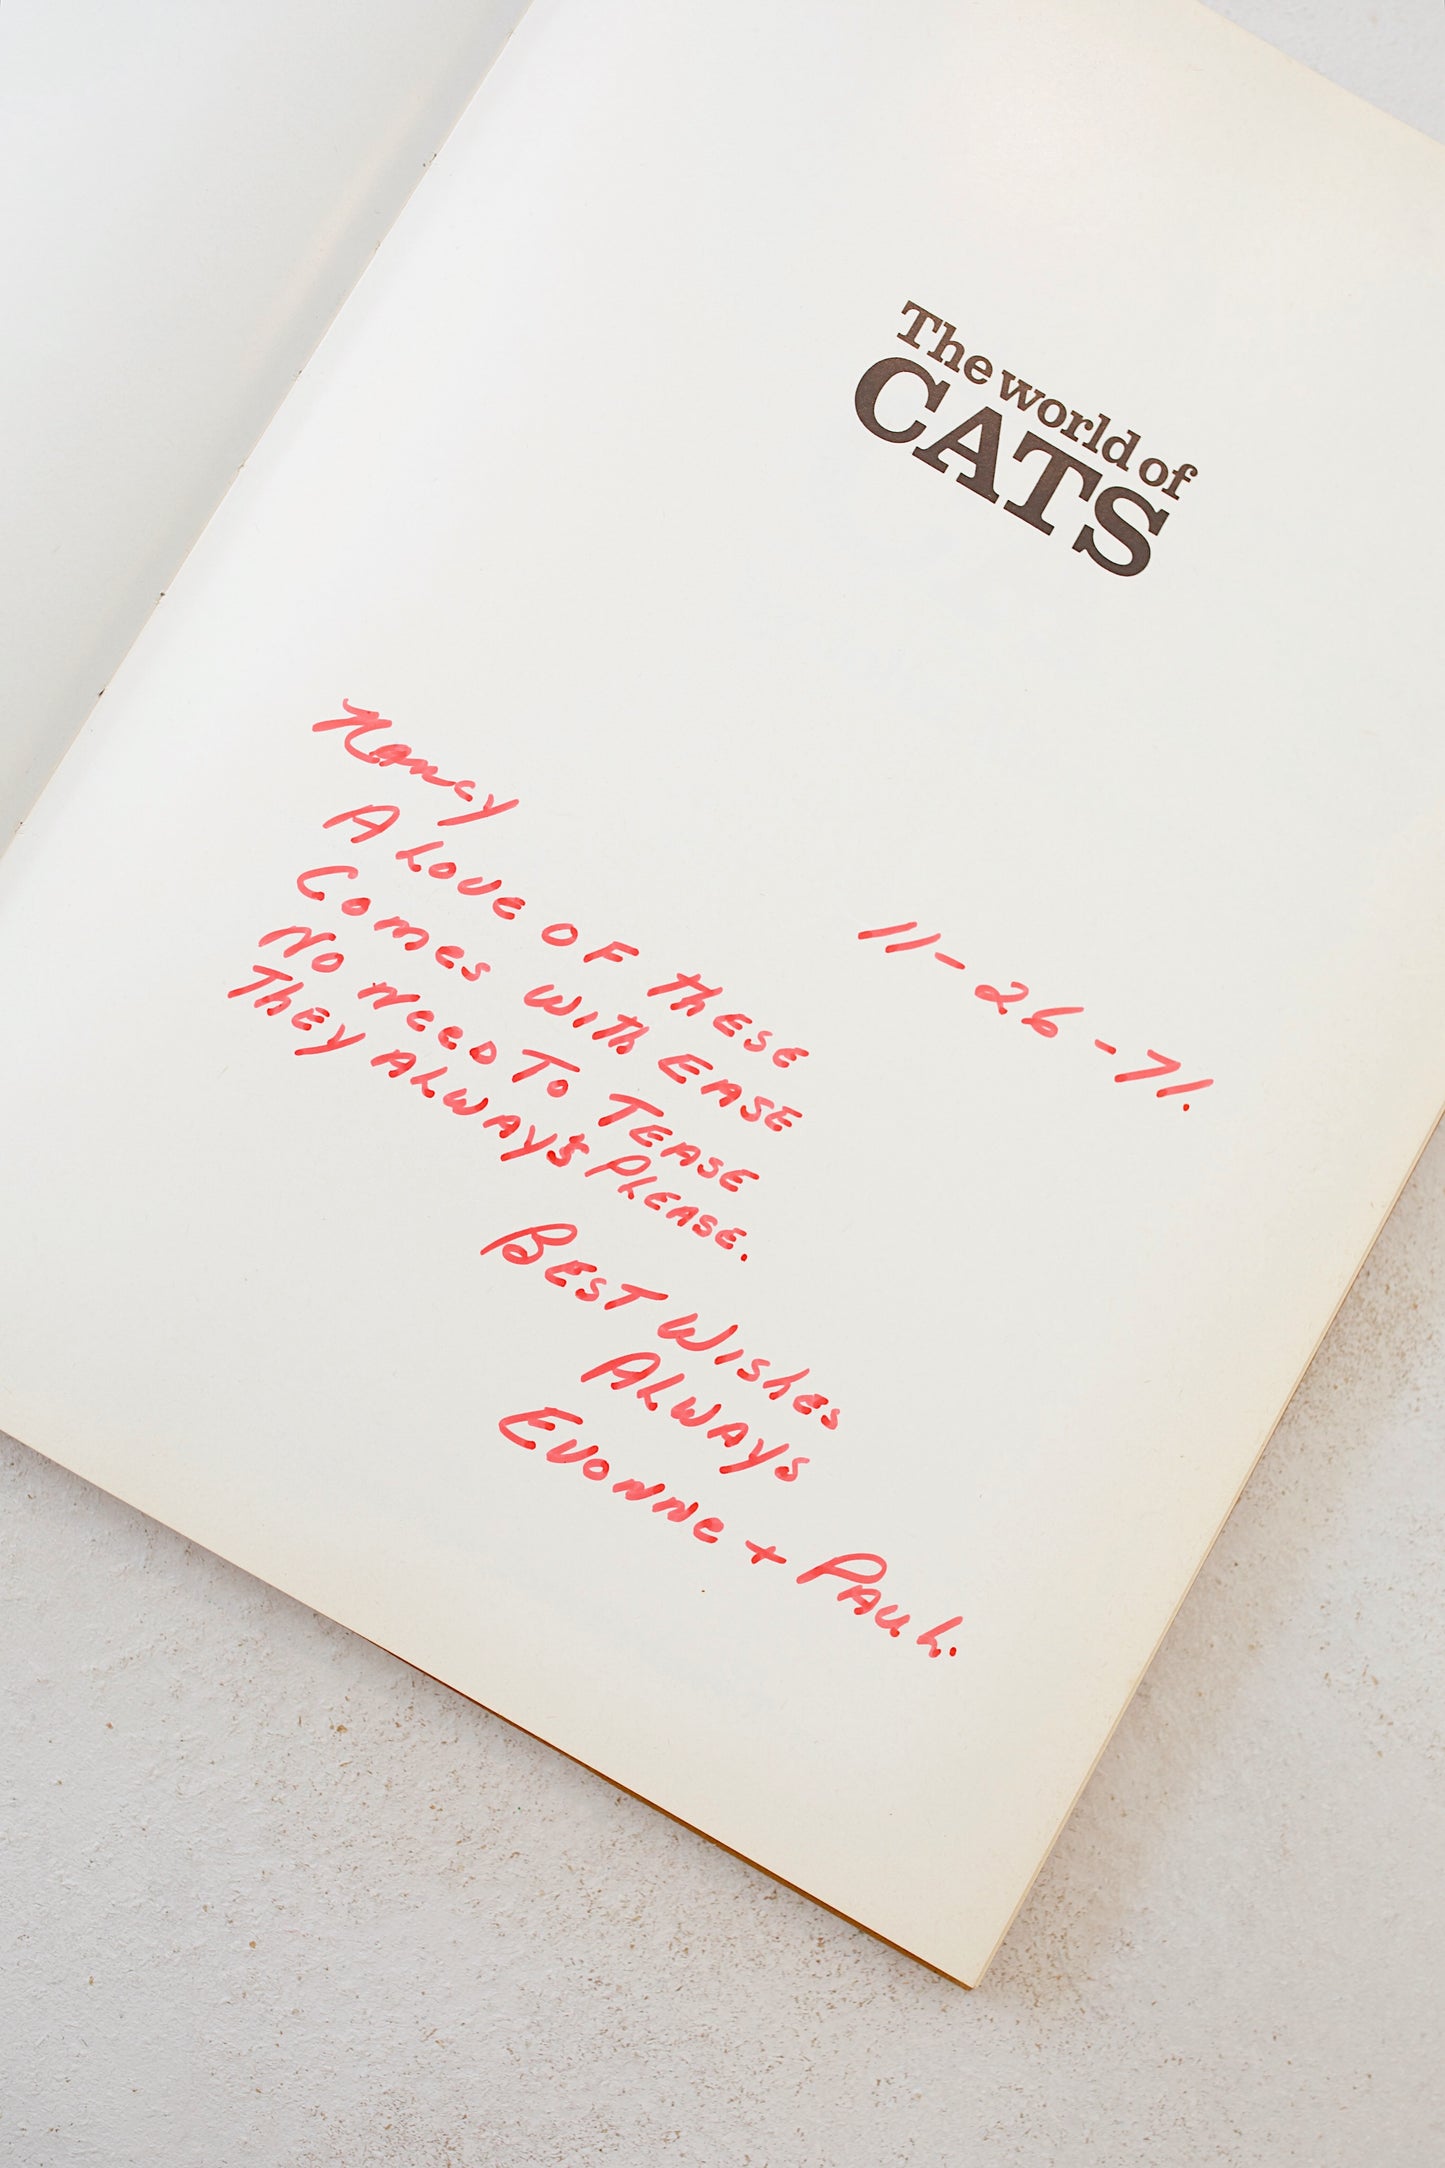 The world of
CATS
11-26-71.
Nancy
A LOVE OF THESE
COMES WITH EASE
NO NEED TO TEASE
THEY ALWAYS PLEASE.
BEST WISHES
ALWAYS
EVONNE + PAUL.